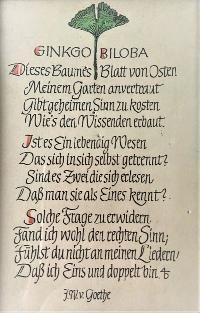 GINKGO BILOBA
Dieses Baumes Blatt von Osten
Meinem Garten anvertraut
Gibt geheimen Sinn zu kosten
Wie's den Wissenden erbaut.
Ist es Ein lebendig Wesen
Das sich in sich selbst getrennt?
Sind es Zwei die sich erlesen
Daß man sie als Eines kennt?
Solche Frage zu erwidern
Fand ich wohl den rechten Sinn;
Fühlst du nicht an meinen Liedern
Daß ich Eins und doppelt bin.
J.W.v. Goethe